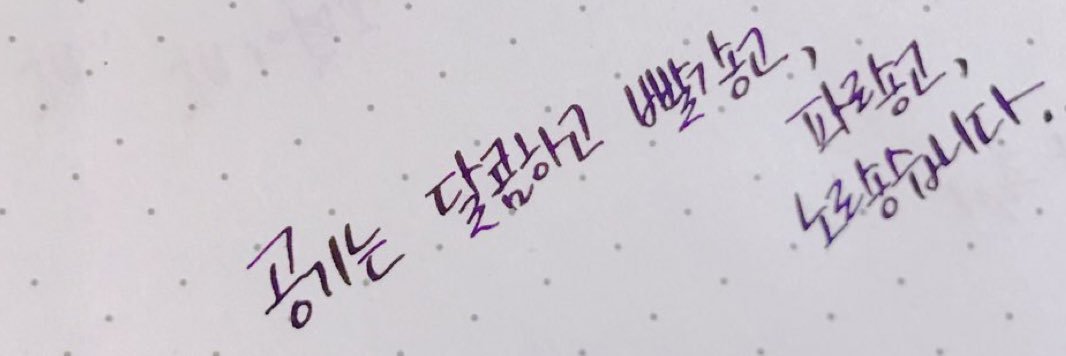 공기는 달콤하고 빨갛고,
파랗고,
노랗습니다.